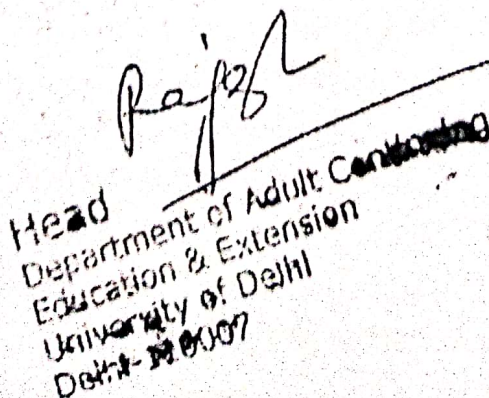 Rajesh
Head
Department of Adult Continuing
Education & Extension
University of Delhi
Delhi-110007